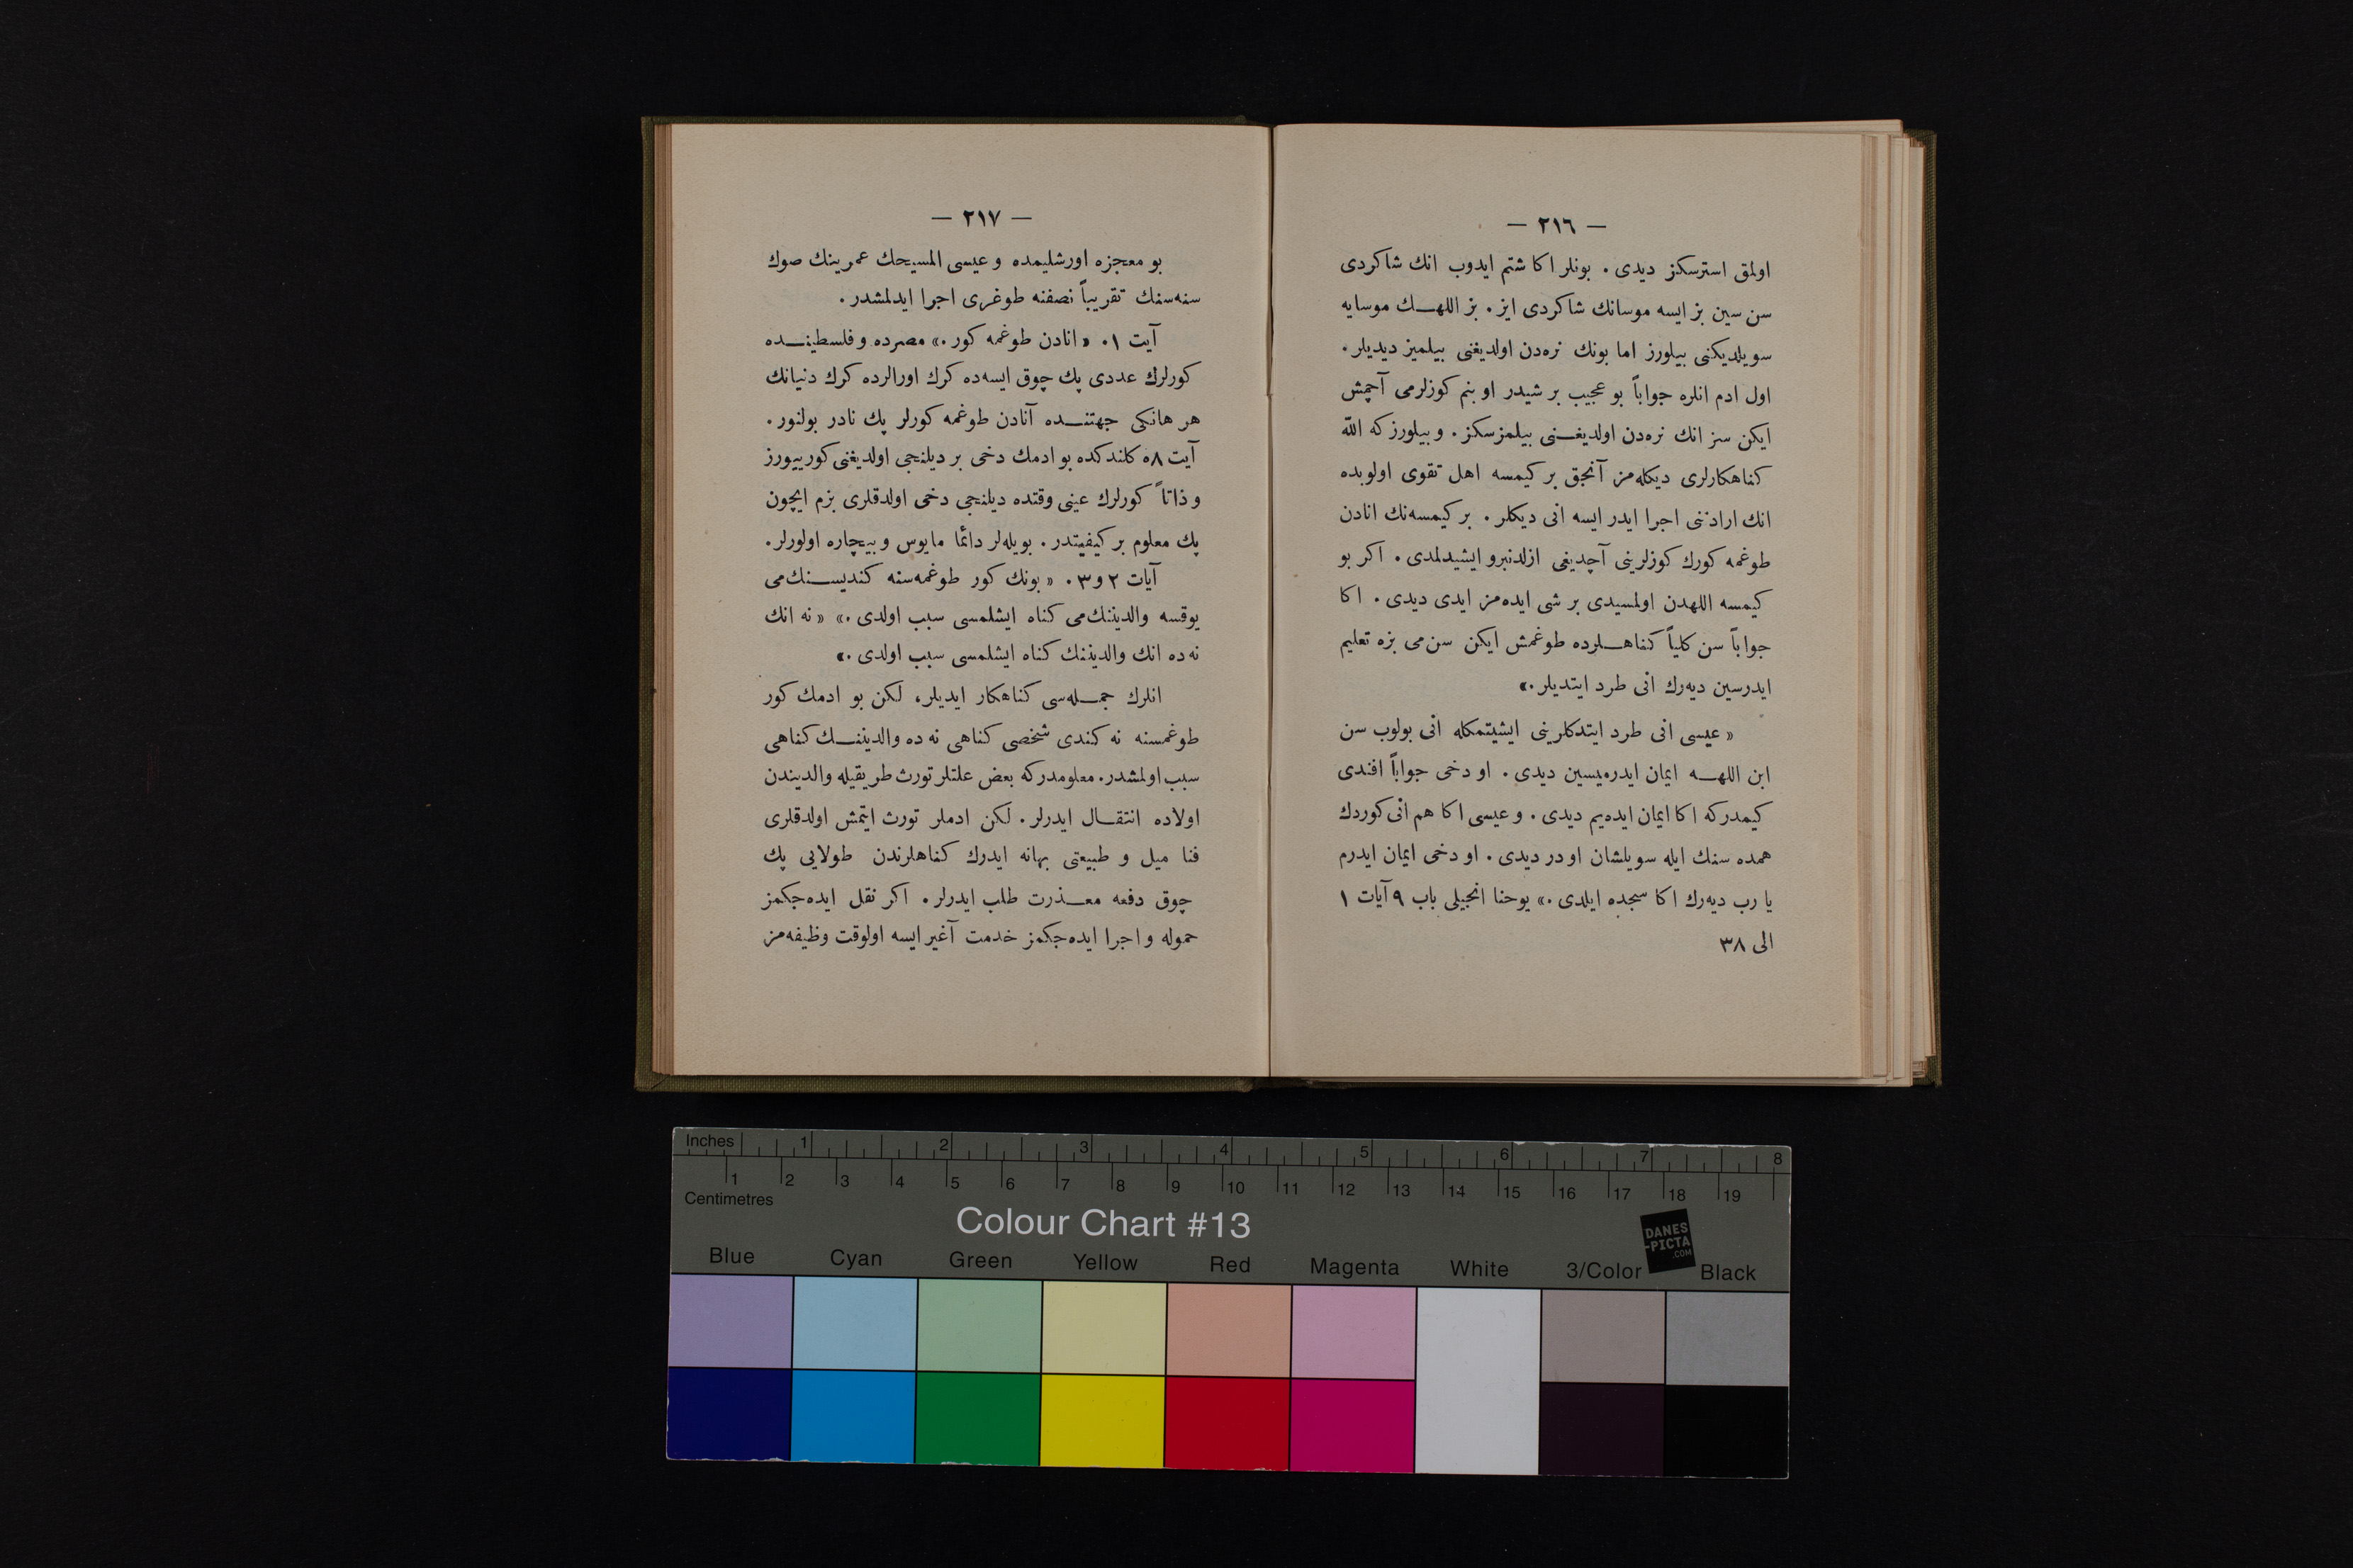 — ٢١٦ —
اولمق استرسكز ديدى . بونلر اكا شتم ايدوب انك شاكردى
سن سين بز ايسه موسانك شاكردى ايز . بز اللهـك موسايه
سويلديكنى بيلورز اما بونك نره‌دن اولديغنى بيلميز ديديلر .
اول ادم انلره جواباً بو عجيب بر شيدر او بنم كوزلرمى آچمش
ايكن سز انك نره‌دن اولديغـنى بيلمزسكز . و بيلورز كه الله
كناهكارلرى ديكله‌مز آنجق بر كيمسه اهل تقوى اولوبده
انك اراد‌تنى اجرا ايدر ايسه انى ديكلر . بر كيمسه‌نك انادن
طوغمه كورك كوزلرينى آچديغى ازلدنبرو ايشيدلمدى . اكر بو
كيمسه اللهدن اولمسيدى بر شى ايده‌مز ايدى ديدى . اكا
جواباً سن كلياً كناهـلرده طوغمش ايكن سن‌مى بزه تعليم
ايدرسين ديه‌رك انى طرد ايتديلر .»
« عيسى انى طرد ايتدكلرينى ايشيتمكله انى بولوب سن
ابن اللهـه ايمان ايدرميسين ديدى . او دخى جواباً افندى
كيمدر كه اكا ايمان ايده‌يم ديدى . و عيسى اكا هم انى كوردك
همده سنك ايله سويلشان او در ديدى . او دخى ايمان ايدرم
يا رب ديه‌رك اكا سجده ايلدى .» يوحنا انجيلى باب ٩ آيات ١
الى ٣٨
— ٢١٧ —
بو معجزه اورشليمده و عيسى المسيحك عمرينك صوك
سنه‌سنك تقريباً نصفنه طوغرى اجرا ايدلمشدر .
آيت ١ . « انادن طوغمه كور .» مصرده و فلسطينـده
كورلرك عددى پك چوق ايسه‌ده كرك اورالرده كرك دنيانك
هر هانكى جهتنـده آنادن طوغمه كورلر پك نادر بولنور .
آيت ٨ ه كلندكده بو ادمك دخى بر ديلنجى اولديغنى كورييورز
و ذاتاً كورلرك عينى وقتده ديلنجى دخى اولدقلرى بزم ايچون
پك معلوم بر كيفيتدر . بويله‌لر دائما مايوس و بيچاره اولورلر .
آيات ٢ و ٣ . « بونك كور طوغمه‌سنه كنديسـنك‌مى
يوقسه والديننك‌مى كناه ايشلمسى سبب اولدى .» « نه انك
نه ده انك والديننك كناه ايشلمسى سبب اولدى .»
انلرك جمـله‌سى كناهكار ايديلر، لكن بو ادمك كور
طوغمسنه نه كندى شخصى كناهى نه ده والديننـك كناهى
سبب اولمشدر . معلومدر كه بعض علتلر تورث طريقيله والديندن
اولاده انتقـال ايدرلر . لكن ادملر تورث ايتمش اولدقلرى
فنا ميل و طبيعتى بهانه ايدرك كناهلرندن طولايى پك
چوق دفعه معـذرت طلب ايدرلر . اكر نقل ايده‌جكمز
حموله و اجرا ايده‌جكمز خدمت آغير ايسه اولوقت وظيفه‌مز
Inches 1 2 3 4 5 6 7 8
1 2 3 4 5 6 7 8 9 10 11 12 13 14 15 16 17 18 19
Centimetres
Colour Chart #13
DANES
-PICTA
.COM
Blue Cyan Green Yellow Red Magenta White 3/Color Black